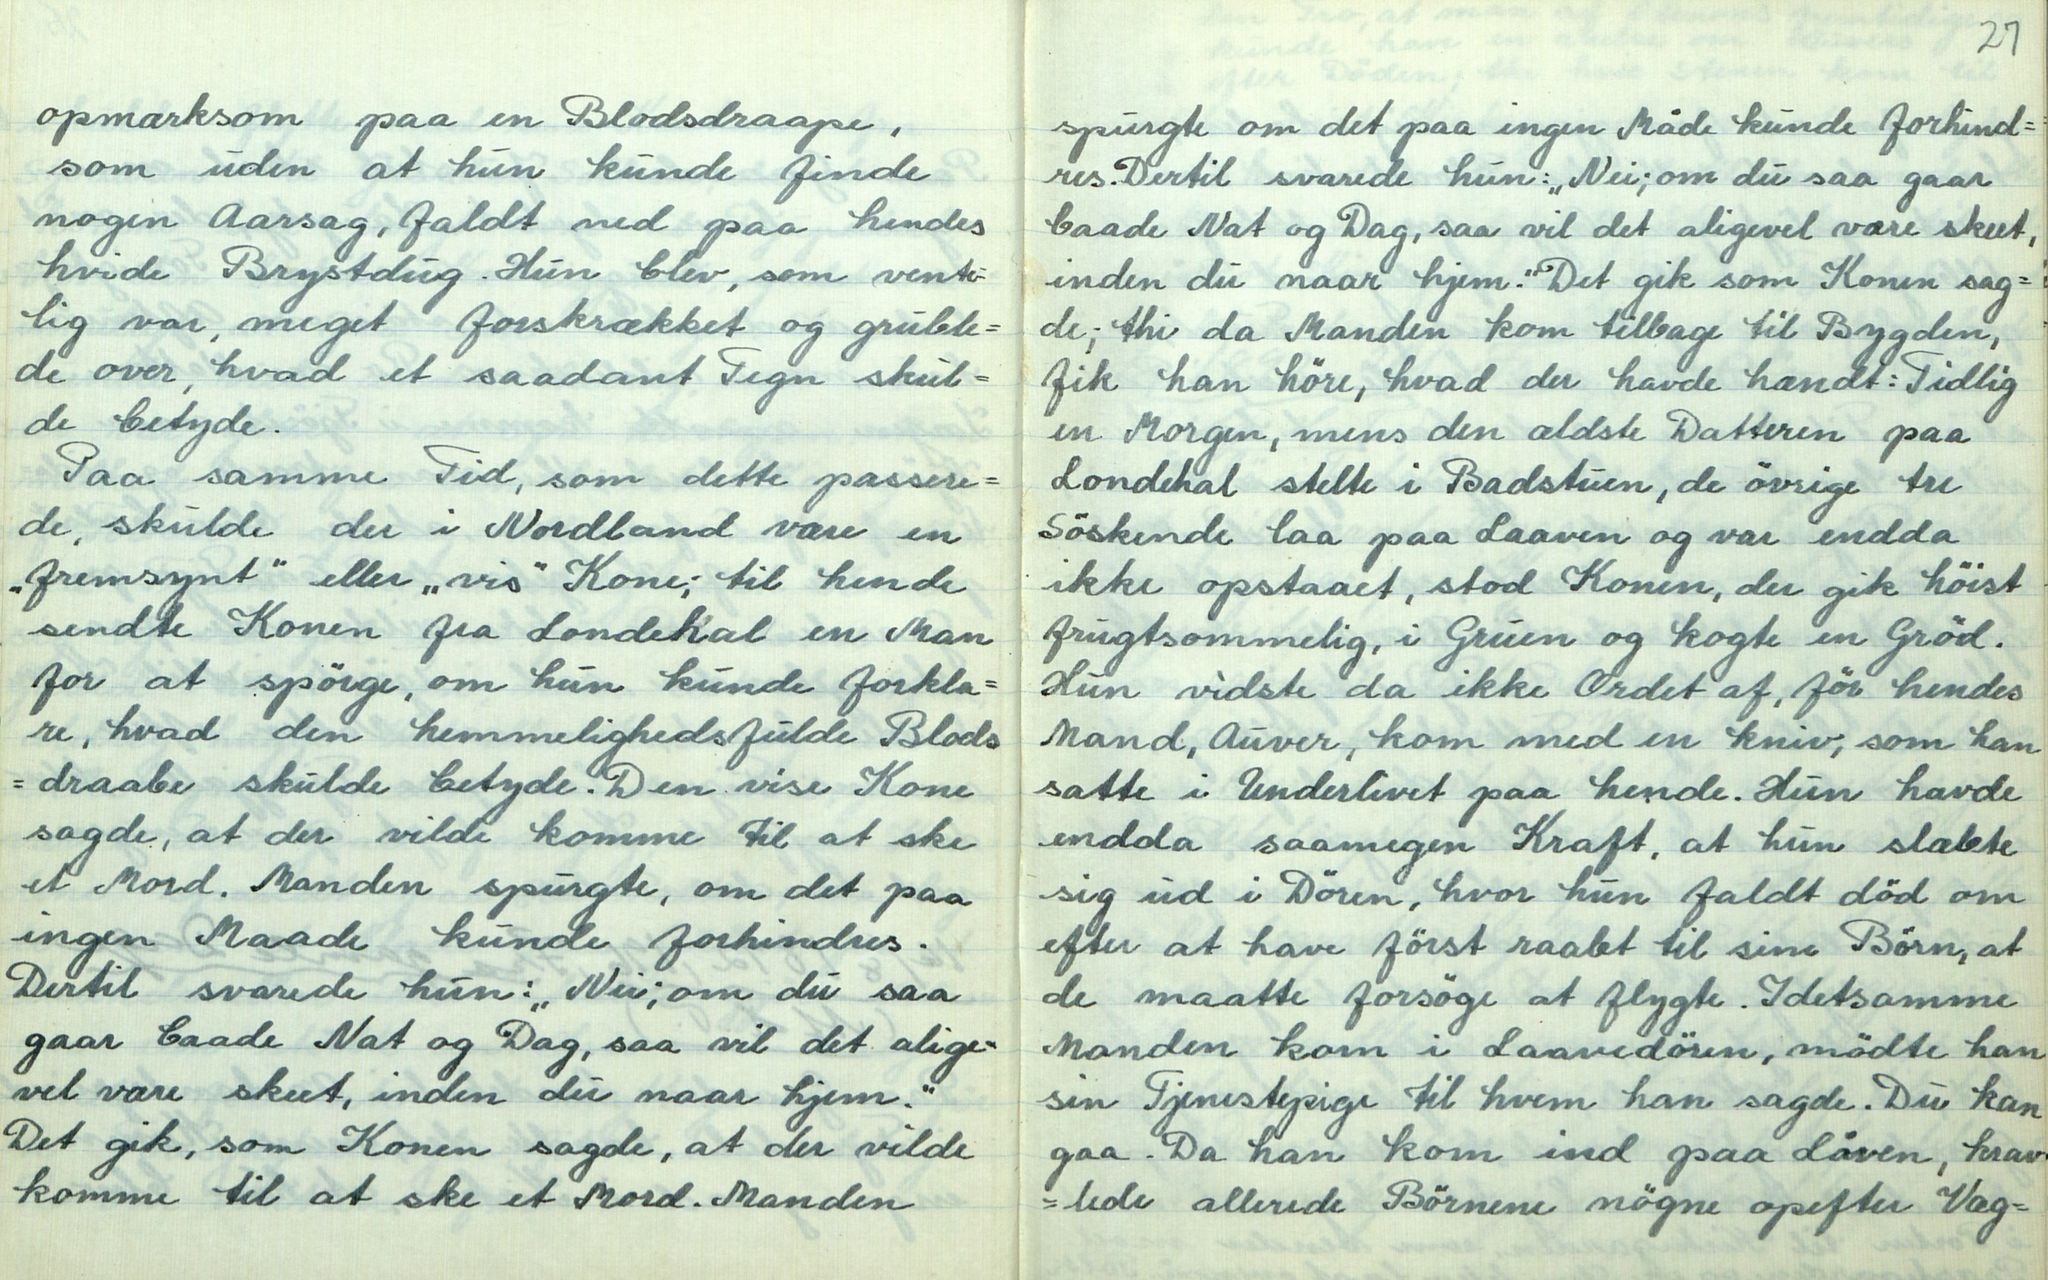 opmærksom paa en Blodsdraape,
som uden at hun kunde finde
nogen Aarsag, faldt ned paa hendes
hvide Brystdug. Hun blev, som vente-
lig var, meget forskrækket og gruble=
de over, hvad et saadant Tegn skul=
de betyde.
Paa samme Tid, som dette passere=
de, skulde der i Nordland være en
„fremsynt" eller „vis" Kone; til hende
sendte Konen fra Londehal en Man
for at spörge, om hun kunde forkla=
re, hvad den hemmelighedsfulde Blods
=draabe skulde betyde. Den vise Kone
sagde, at der vilde komme til at ske
et Mord. Manden spurgte, om det paa
ingen Maade kunde forhindres.
Dertil svarede hun: „Nei; om du saa
gaar baade Nat og Dag, saa vil det alige-
vel være skeet, inden du naar hjem."
Det gik, som Konen sagde, at der vilde
komme til at ske et Mord. Manden
27
spurgte om det paa ingen Måde kunde forhind=
res. Dertil svarede hun: „Nei; om du saa gaar
baade Nat og Dag, saa vil det aligevel være skeet,
inden du naar hjem." Det gik som Konen sag=
de; thi da Manden kom tilbage til Bygden,
fik han höre, hvad der havde hændt: Tidlig
en Morgen, mens den ældste Datteren paa
Londehal stelte i Badstuen, de övrige tre
Söskende laa paa Laaven og var endda
ikke opstaaet, stod Konen, der gik höist
frugtsommelig, i Gruen og kogte en Gröd.
Hun vidste da ikke Ordet af, för hendes
Mand, Auver, kom med en kniv, som han
satte i Underlivet paa hende. Hun havde
endda saamegen Kraft, at hun slæbte
sig ud i Dören, hvor hun faldt död om
efter at have först raabt til sine Börn, at
de maatte forsöge at flygte. Idetsamme
Manden kom i Laavedören, mödte han
sin Tjenestepige til hvem han sagde. Du kan
gaa. Da han kom ind paa Låven, krav
=lede allerede Börnene nögne opefter Væg=